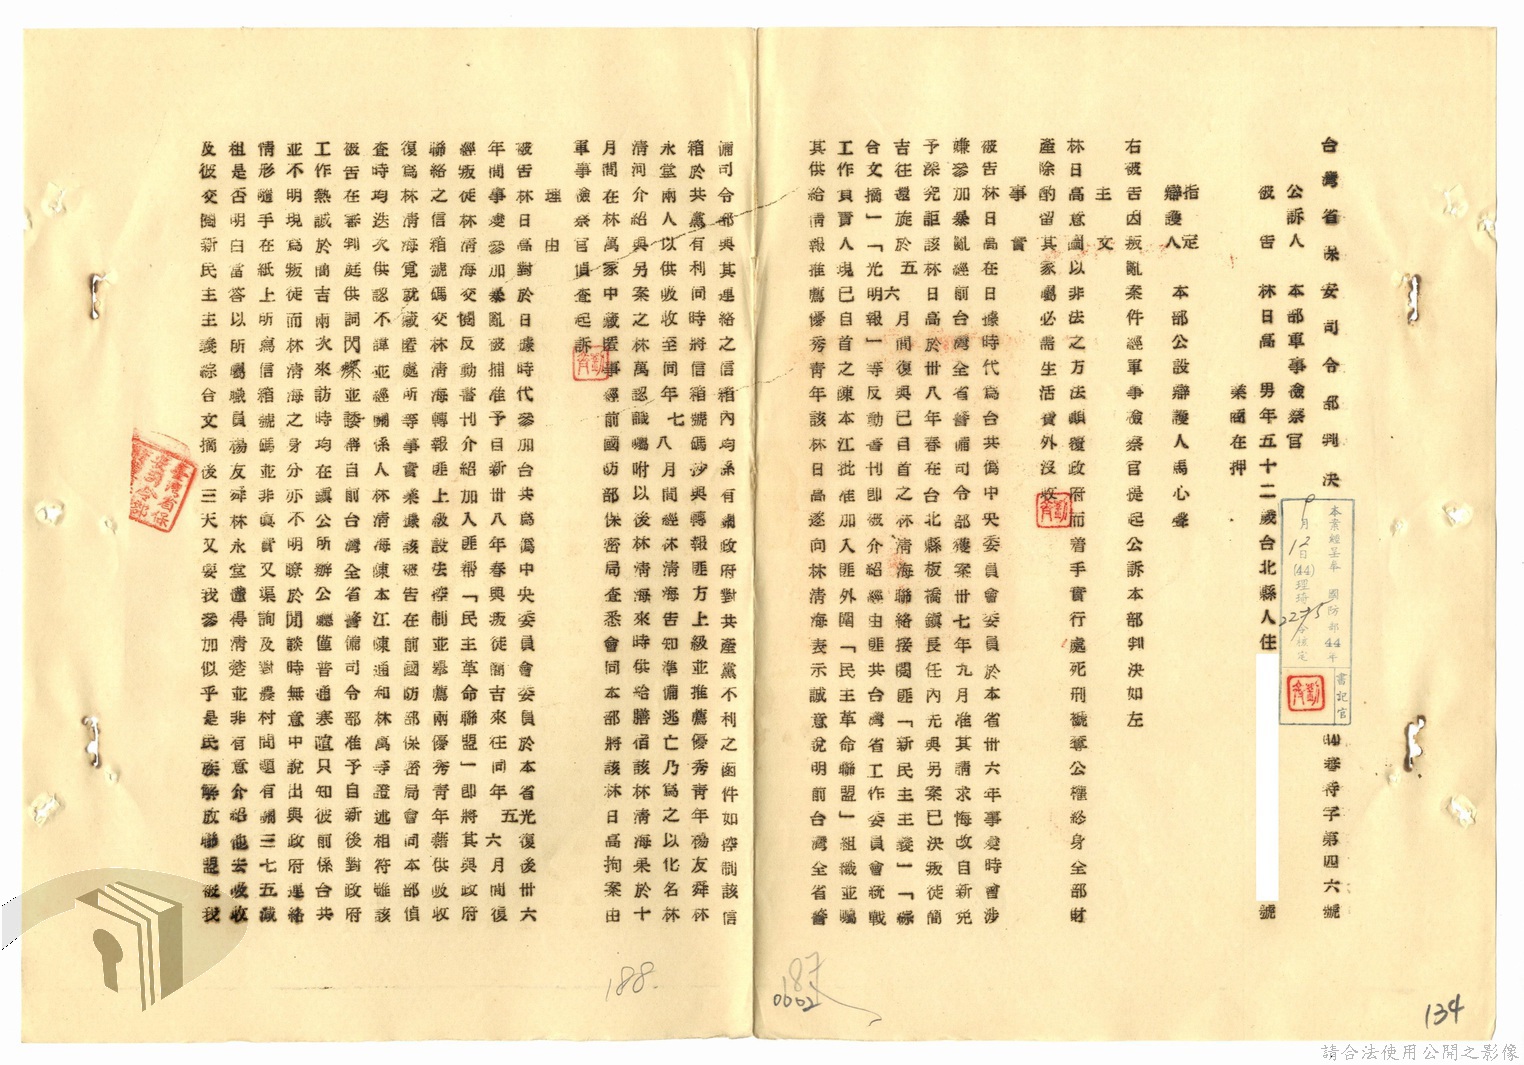 台灣省保安司令部判決
審特字第四六號
公訴人 本部軍事檢察官
被告 林日高 男年五十二歲台北縣人住
號
業 在押
指定
辯護人 本部公設辯護人馮心聲
右被告因叛亂案件經軍事檢察官提起公訴本部判決如左
主文
林日高意圖以非法之方法顛覆政府而着手實行處死刑褫奪公權終身全部財
產除酌留其家屬必需生活費外沒收
事實
被告林日高在日據時代為台共偽中央委員會委員於本省卅六年事變時會涉
嫌參加暴亂經前台灣全省警備司令部獲案卅七年九月准其請求悔改自新免
予深究詎該林日高於卅八年春在台北縣板橋鎮長任內元與另案已決叛徒簡
吉往還旋於五六月間復與已自首之林清海聯絡接閱匪「新民主主義」「綜
合文摘」「光明報」等反動書刊即被介紹經由匪共台灣省工作委員會統戰
工作負責人現已自首之陳本江批准加入匪外圍「民主革命聯盟」組織並囑
其供給情報推薦優秀青年該林日高遂向林清海表示誠意說明前台灣全省警
備司令部與其連絡之信箱內均系有關政府對共產黨不利之函件如控制該信
箱於共黨有利同時將信箱號碼抄與轉報匪方上級並推薦優秀青年楊友舜林
永堂兩人以供收收至同年七八月間經林清海告知準備逃亡乃為之以化名林
清河介紹與另案之林萬認識囑咐以後林清海來時供給膳宿該林清海果於十
月間在林萬家中藏匿事經前國防部保密局查悉會同本部將該林日高拘案由
軍事檢察官偵查起訴
理由
被告林日高對於日據時代參加台共為偽中央委員會委員於本省光復後卅六
年間事變參加暴亂被捕准予自新卅八年春與叛徒簡吉來往同年五六月間復
經叛徒林清海交閱反動書刊介紹加入匪幫「民主革命聯盟」即將其與政府
聯絡之信箱號碼交林清海轉報匪上級設法控制並舉薦兩優秀青年藉供收收
復為林清海覓就藏匿處所等事實業據該被告在前國防部保密局會同本部偵
查時均迭次供認不諱並經關係人林清海陳本江陳通和林萬等證述相符雖該
被告在審判庭供詞閃爍並諉稱自前台灣全省警備司令部准予自新後對政府
工作熱誠於簡吉兩次來訪時均在鎮公所辦公廳僅普通寒暄只知彼前係台共
並不明現為叛徒而林清海之身分亦不明瞭於閒談時無意中說出與政府連絡
情形隨手在紙上所寫信箱號碼並非真實又渠詢及對農村問題有關三七五減
租是否明白當答以所屬職員楊友舜林永堂還得清楚並非有意介紹他去收收
及彼交閱新民主主義綜合文摘後三天又要我參加似乎是民族解放聯盟被我
本案經呈奉 國防部44年
9月12日(44)理琦
2275令核定
書記官
臺灣省保
安司令部
187
0002
188.
134
請合法使用公開之影像